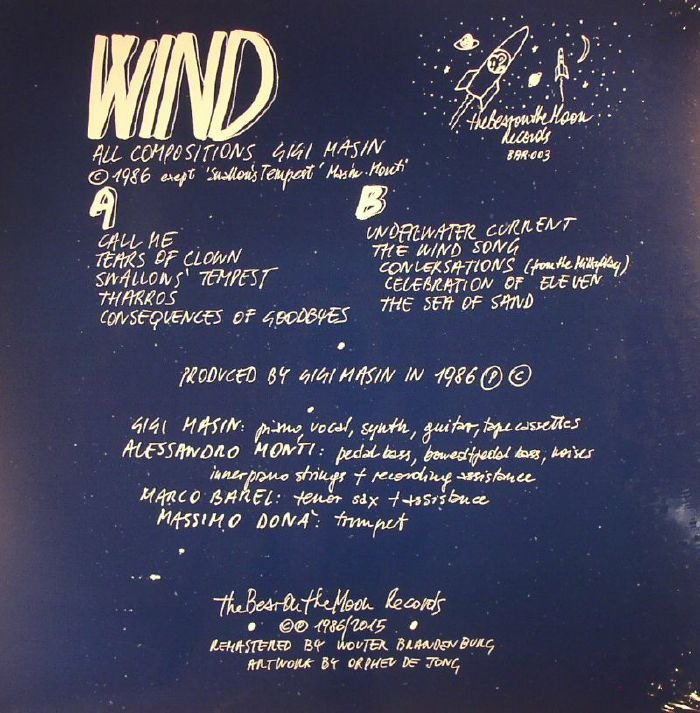 WIND
ALL COMPOSITIONS GIGI MASIN
© 1986 exept 'Swallon's Tempest' Masin-Monti'
TheBearOntheMoon
Records
BAR-003
A
CALL ME
TEARS OF CLOWN
SWALLONS' TEMPEST
THARROS
CONSEQUENCES OF GOODBYES
B
UNDERWATER CURRENT
THE WIND SONG
CONVERSATIONS (from the MilkyWay)
CELEBRATION OF ELEVEN
THE SEA OF SAND
PRODUCED BY GIGI MASIN IN 1986 ℗ ©
GIGI MASIN: piano, vocal, synth, guitar, tape cassettes
ALESSANDRO MONTI: pedal bass, bowed pedal bass, noises
inner piano strings + recording assistance
MARCO BAREL: tenor sax + assistance
MASSIMO DONA': trumpet
TheBearOntheMoon Records
©℗ 1986/2015
REMASTERED BY WOUTER BRANDENBURG
ARTWORK BY ORPHEU DE JONG